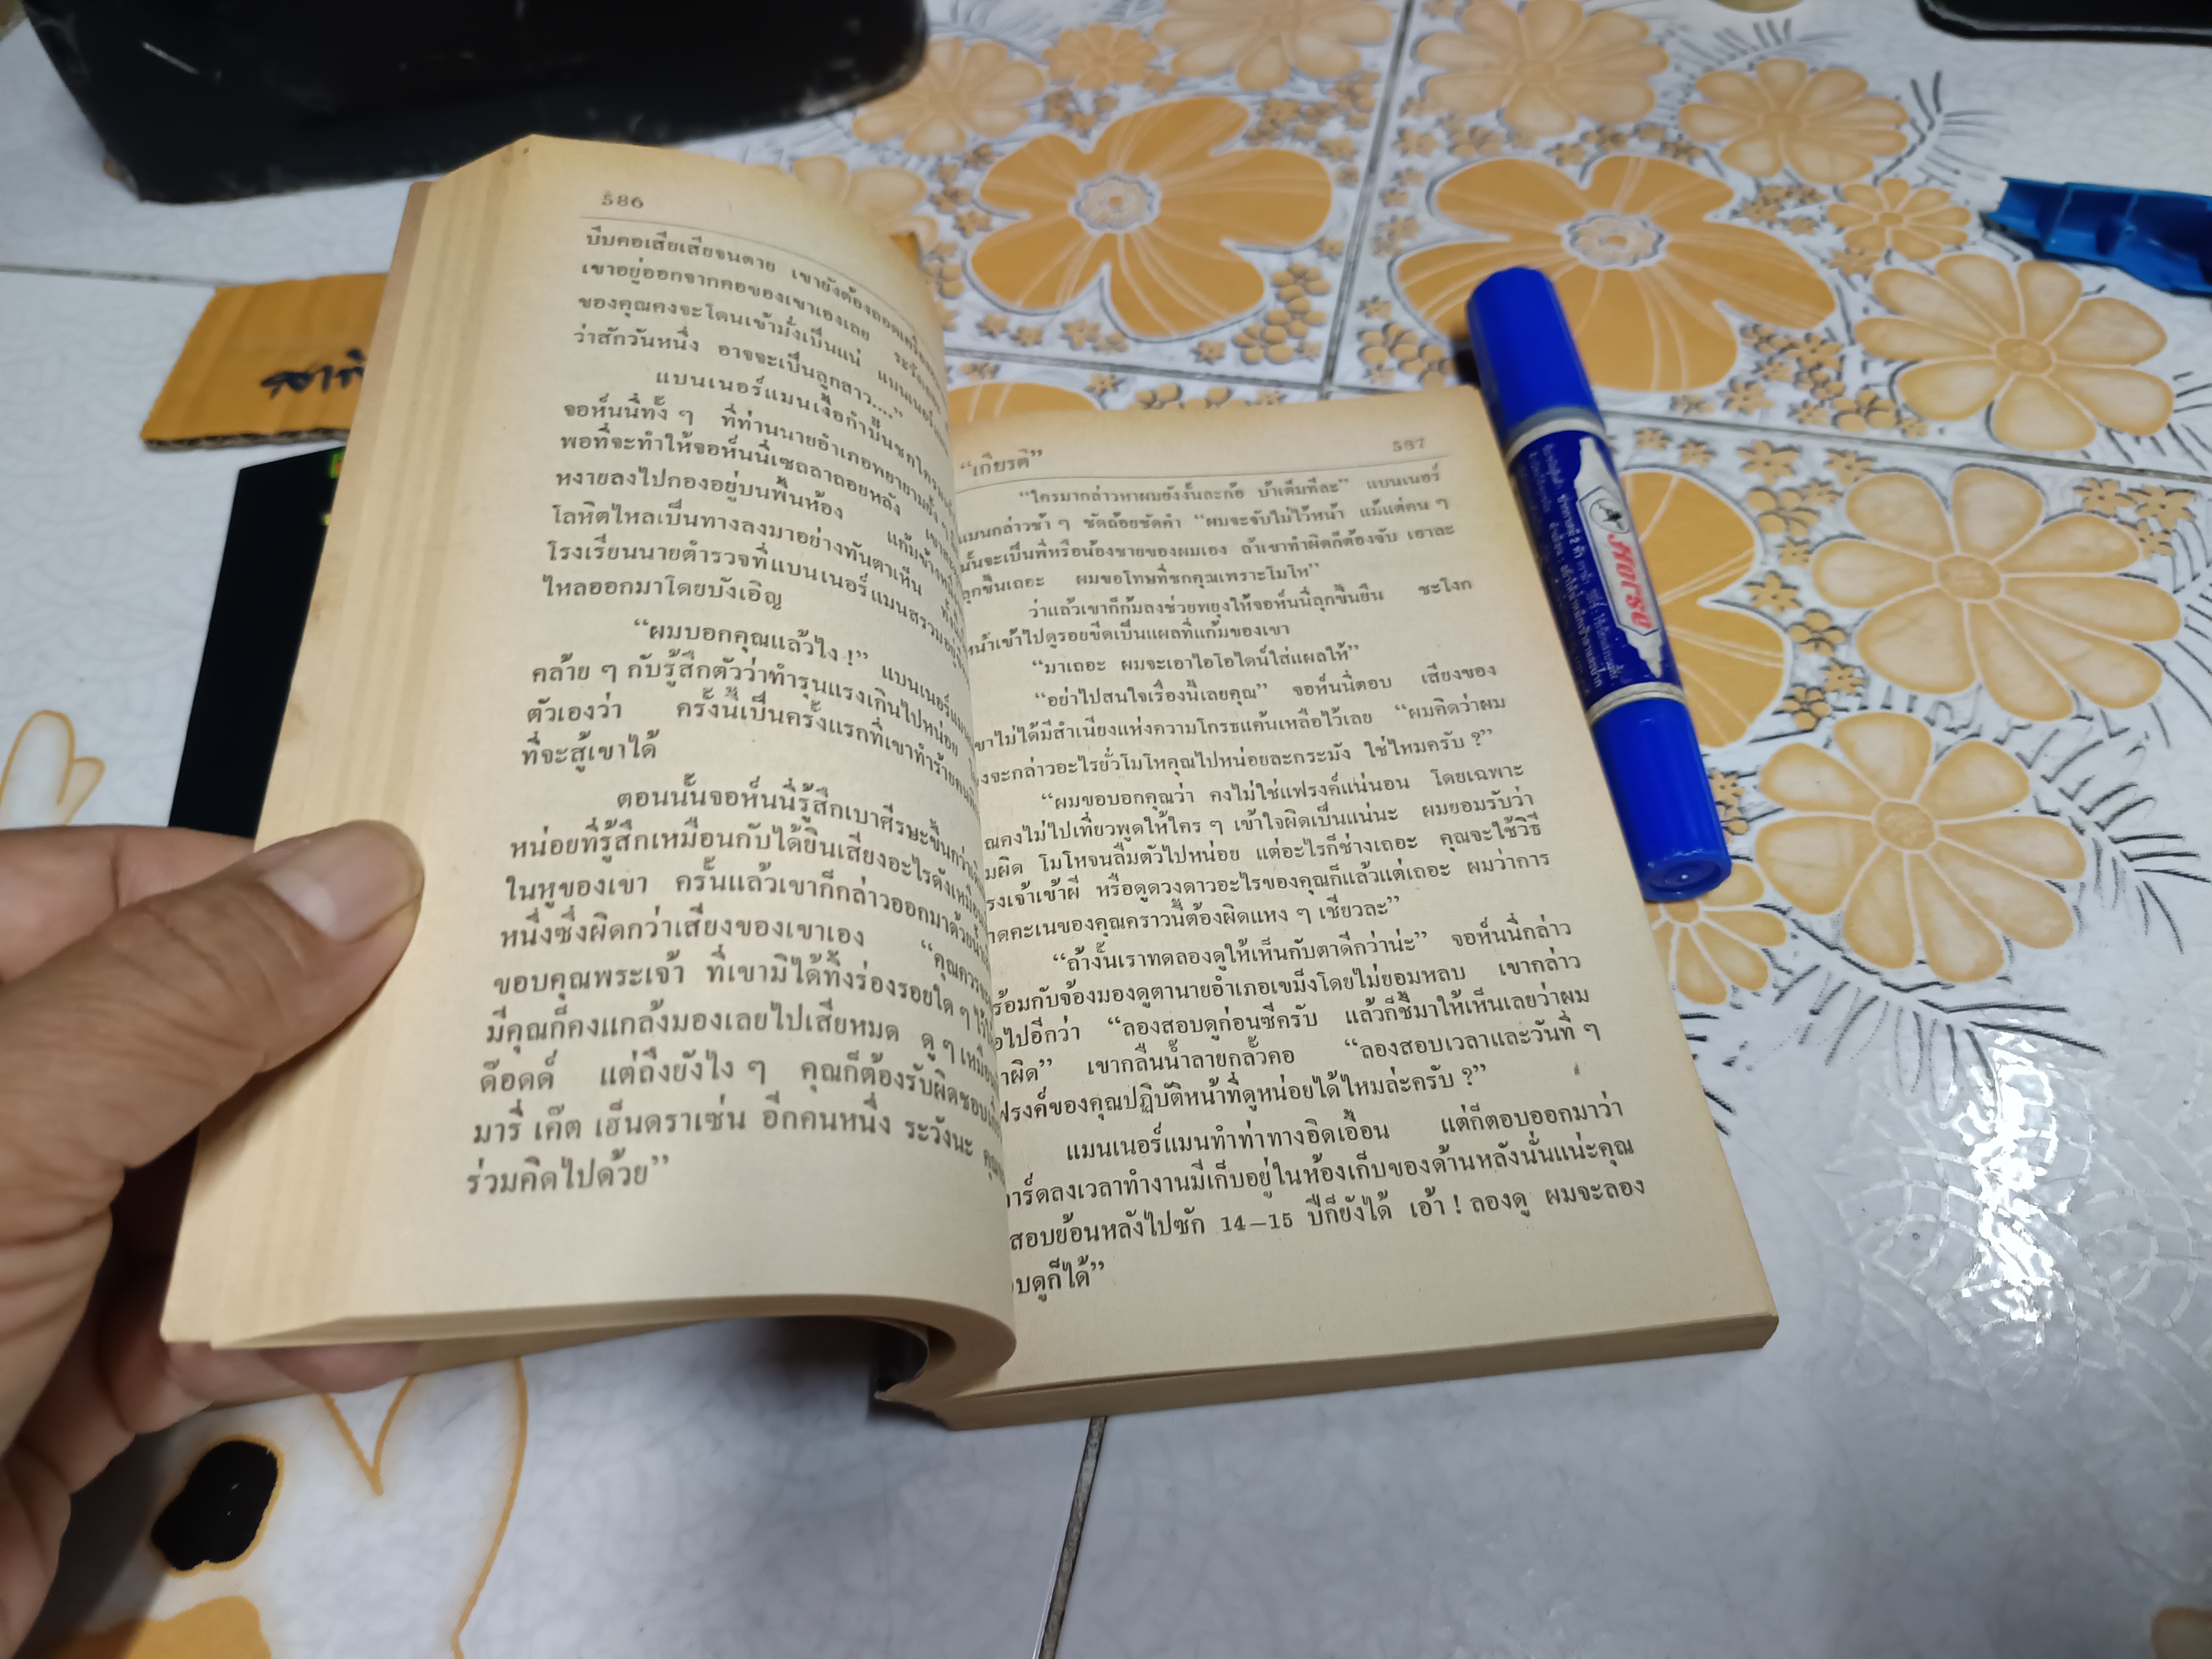 586
บีบคอเสียเสียจนตาย เขายังต้องถอด
เขาอยู่ออกจากคอของเขาเองเลย ระวัง
ของคุณคงจะโดนเข้ามั่งเป็นแน่ แบนเนอร์
ว่าสักวันหนึ่ง อาจจะเป็นลูกสาว....”
แบนเนอร์แมนเงื้อกำปั้นชกโครม
จอห์นนี่ทั้ง ๆ ที่ท่านนายอำเภอพยายามยั้ง ๆ
พอที่จะทำให้จอห์นนี่เซถลาถอยหลัง
หงายลงไปกองอยู่บนพื้นห้อง แก้มข้าง
โลหิตไหลเป็นทางลงมาอย่างทันตาเห็น
โรงเรียนนายตำรวจที่แบนเนอร์แมนสรวมอยู่
ไหลออกมาโดยบังเอิญ
“ผมบอกคุณแล้วไง !” แบนเนอร์แมน
คล้าย ๆ กับรู้สึกตัวว่าทำรุนแรงเกินไปหน่อย
ตัวเองว่า ครั้งนี้เป็นครั้งแรกที่เขาทำร้ายคน
ที่จะสู้เขาได้
ตอนนั้นจอห์นนี่รู้สึกเบาศีรษะขึ้นกว่า
หน่อยที่รู้สึกเหมือนกับได้ยินเสียงอะไรดังเหมือน
ในหูของเขา ครั้นแล้วเขาก็กล่าวออกมาด้วย
หนึ่งซึ่งผิดกว่าเสียงของเขาเอง “คุณควรจะ
ขอบคุณพระเจ้า ที่เขามิได้ทิ้งร่องรอยใด ๆ ไว้
มีคุณก็คงแกล้งมองเลยไปเสียหมด ดู ๆ เหมือน
ด๊อดด์ แต่ถึงยังไง ๆ คุณก็ต้องรับผิดชอบ
มารี่ เค๊ต เฮ็นดราเซ่น อีกคนหนึ่ง ระวังนะ
ร่วมคิดไปด้วย”
“เกียรติ” 587
“ใครมากล่าวหาผมยังงั้นละก้อ บ้าเต็มทีละ” แบนเนอร์
แมนกล่าวช้า ๆ ชัดถ้อยชัดคำ “ผมจะจับไม่ไว้หน้า แม้แต่คน ๆ
นั้นจะเป็นพี่หรือน้องชายของผมเอง ถ้าเขาทำผิดก็ต้องจับ เอาละ
ลุกขึ้นเถอะ ผมขอโทษที่ชกคุณเพราะโมโห”
ว่าแล้วเขาก็ก้มลงช่วยพยุงให้จอห์นนี่ลุกขึ้นยืน ชะโงก
หน้าเข้าไปดูรอยขีดเป็นแผลที่แก้มของเขา
“มาเถอะ ผมจะเอาไอโอไดน์ใส่แผลให้”
“อย่าไปสนใจเรื่องนี้เลยคุณ” จอห์นนี่ตอบ เสียงของ
ขาไม่ได้มีสำเนียงแห่งความโกรธแค้นเหลือไว้เลย “ผมคิดว่าผม
งจะกล่าวอะไรยั่วโมโหคุณไปหน่อยละกระมัง ใช่ไหมครับ ?”
“ผมขอบอกคุณว่า คงไม่ใช่แฟรงค์แน่นอน โดยเฉพาะ
ณคงไม่ไปเที่ยวพูดให้ใคร ๆ เข้าใจผิดเป็นแน่นะ ผมยอมรับว่า
มผิด โมโหจนลืมตัวไปหน่อย แต่อะไรก็ช่างเถอะ คุณจะใช้วิธี
รงเจ้าเข้าผี หรือดูดวงดาวอะไรของคุณก็แล้วแต่เถอะ ผมว่าการ
าดคะเนของคุณคราวนี้ต้องผิดแหง ๆ เชียวละ”
“ถ้างั้นเราทดลองดูให้เห็นกับตาดีกว่าน่ะ” จอห์นนี่กล่าว
ร้อมกับจ้องมองดูตานายอำเภอเขม็งโดยไม่ยอมหลบ เขากล่าว
อไปอีกว่า “ลองสอบดูก่อนซีครับ แล้วก็ชี้มาให้เห็นเลยว่าผม
าผิด” เขากลืนน้ำลายกลั้วคอ “ลองสอบเวลาและวันที่ ๆ
ฟรงค์ของคุณปฏิบัติหน้าที่ดูหน่อยได้ไหมล่ะครับ ?”
แมนเนอร์แมนทำท่าทางอิดเอื้อน แต่ก็ตอบออกมาว่า
าร์ดลงเวลาทำงานมีเก็บอยู่ในห้องเก็บของด้านหลังนั่นแน่ะคุณ
สอบย้อนหลังไปซัก 14—15 ปีก็ยังได้ เอ้า ! ลองดู ผมจะลอง
อบดูก็ได้”
HORSE